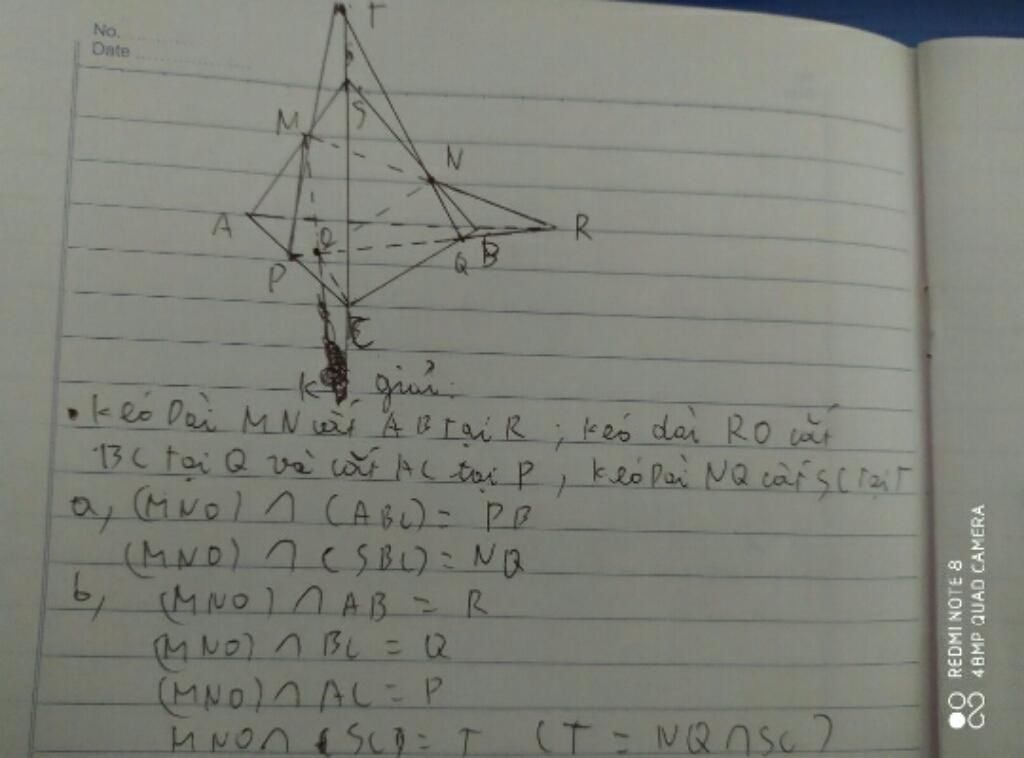 No.
Date
T
S
M
N
A
R
O
P
Q B
C
K giải:
• Kéo Dài MN cắt AB tại R ; kéo dài RO cắt
BC tại Q và cắt AC tại P , kéo Dài NQ cắt SC tại T
a, (MNO) ∩ (ABC) = PB
(MNO) ∩ (SBC) = NQ
b, (MNO) ∩ AB = R
(MNO) ∩ BC = Q
(MNO) ∩ AC = P
MNO ∩ (SC) = T (T = NQ ∩ SC)
REDMI NOTE 8
48MP QUAD CAMERA